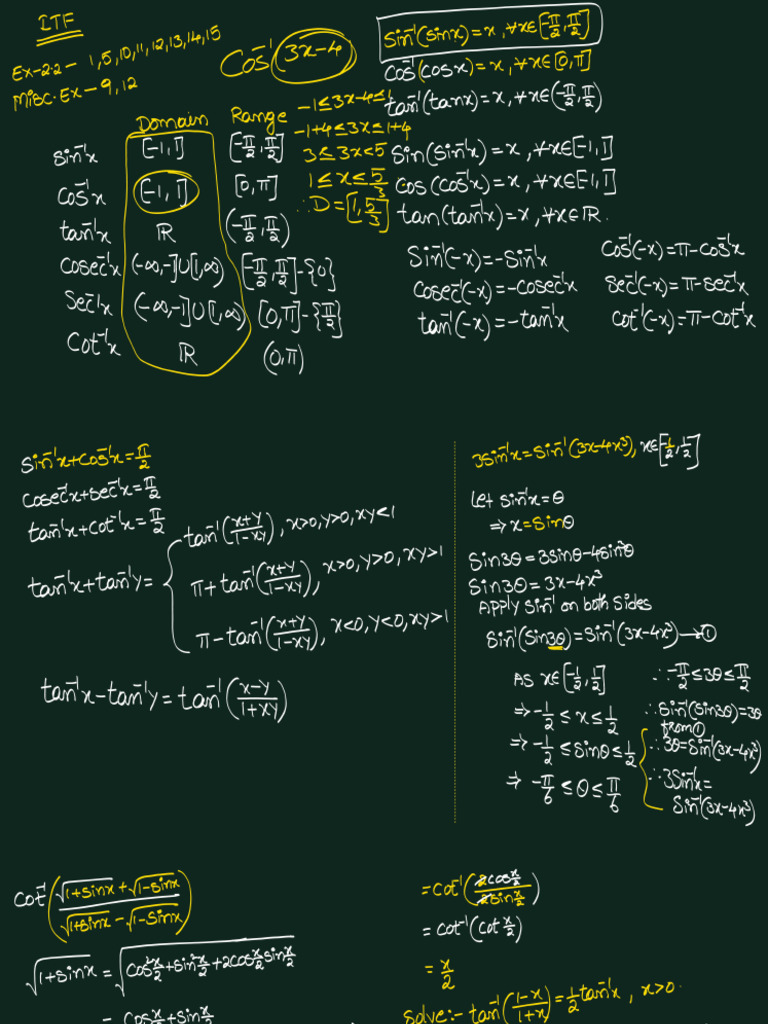 ITF
Ex-2.2 - 1,5,10,11,12,13,14,15
Misc. Ex - 9,12
Cos⁻¹(3x-4)
-1≤3x-4≤1
-1+4≤3x≤1+4
3≤3x≤5
1≤x≤5/3
∴D=[1,5/3]
Domain Range
sin⁻¹x [-1,1] [-π/2,π/2]
cos⁻¹x [-1,1] [0,π]
tan⁻¹x ℝ (-π/2,π/2)
cosec⁻¹x (-∞,-1]∪[1,∞) [-π/2,π/2]-{0}
sec⁻¹x (-∞,-1]∪[1,∞) [0,π]-{π/2}
cot⁻¹x ℝ (0,π)
Sin⁻¹(sinx)=x,∀x∈[-π/2,π/2]
cos⁻¹(cosx)=x,∀x∈[0,π]
tan⁻¹(tanx)=x,∀x∈(-π/2,π/2)
sin(sin⁻¹x)=x,∀x∈[-1,1]
cos(cos⁻¹x)=x,∀x∈[-1,1]
tan(tan⁻¹x)=x,∀x∈ℝ.
Sin⁻¹(-x)=-Sin⁻¹x
cosec⁻¹(-x)=-cosec⁻¹x
tan⁻¹(-x)=-tan⁻¹x
Cos⁻¹(-x)=π-Cos⁻¹x
sec⁻¹(-x)=π-sec⁻¹x
cot⁻¹(-x)=π-cot⁻¹x
sin⁻¹x+cos⁻¹x=π/2
cosec⁻¹x+sec⁻¹x=π/2
tan⁻¹x+cot⁻¹x=π/2
tan⁻¹x+tan⁻¹y=
tan⁻¹((x+y)/(1-xy)), x>0,y>0,xy<1
π+tan⁻¹((x+y)/(1-xy)), x>0,y>0,xy>1
π-tan⁻¹((x+y)/(1-xy)), x<0,y<0,xy>1
tan⁻¹x-tan⁻¹y=tan⁻¹((x-y)/(1+xy))
3Sin⁻¹x=Sin⁻¹(3x-4x³), x∈[-1/2,1/2]
Let sin⁻¹x=θ
⇒x=Sinθ
Sin3θ=3Sinθ-4sin³θ
Sin3θ=3x-4x³
Apply Sin⁻¹ on both sides
Sin⁻¹(Sin3θ)=Sin⁻¹(3x-4x³)→①
As x∈[-1/2,1/2]
⇒-1/2≤x≤1/2
⇒-1/2≤sinθ≤1/2
⇒-π/6≤θ≤π/6
∴-π/2≤3θ≤π/2
∴Sin⁻¹(Sin3θ)=3θ
from①
∴3θ=Sin⁻¹(3x-4x³)
∴3Sin⁻¹x=
Sin⁻¹(3x-4x³)
cot⁻¹((√1+sinx+√1-sinx)/(√1+sinx-√1-sinx))
√1+sinx=√cos²x/2+sin²x/2+2cosx/2sinx/2
=cosx/2+sinx/2
=cot⁻¹(2cosx/2/2sinx/2)
=cot⁻¹(cotx/2)
=x/2
Solve:- tan⁻¹((1-x)/(1+x))=1/2tan⁻¹x, x>0.